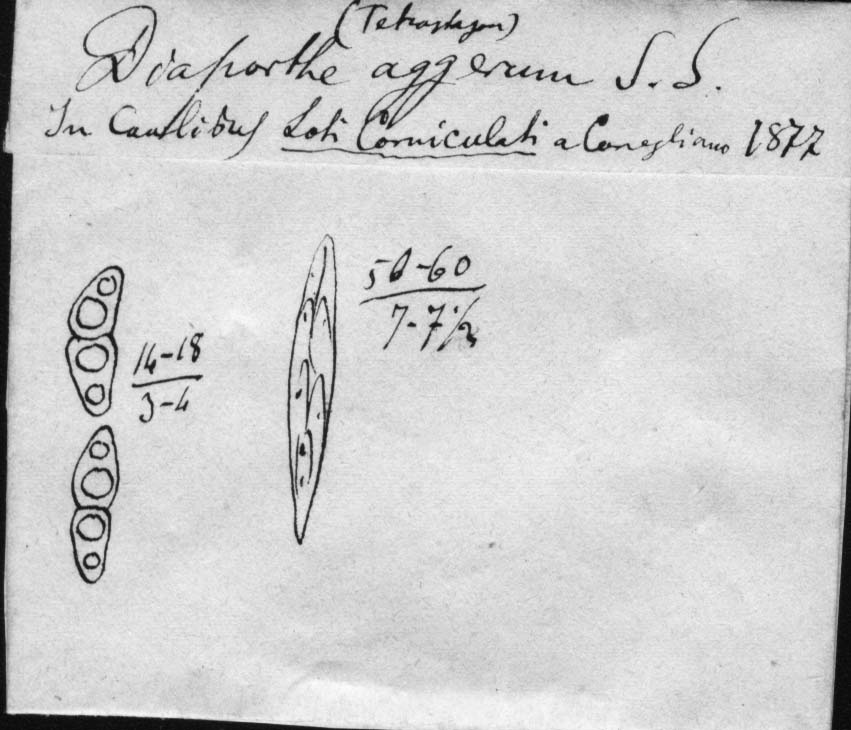 (Tetrastagon)
Diaporthe aggerum S. S.
In Caulibus Loti Corniculati a Conegliano 1877
50-60
7-7 1/2
14-18
3-4